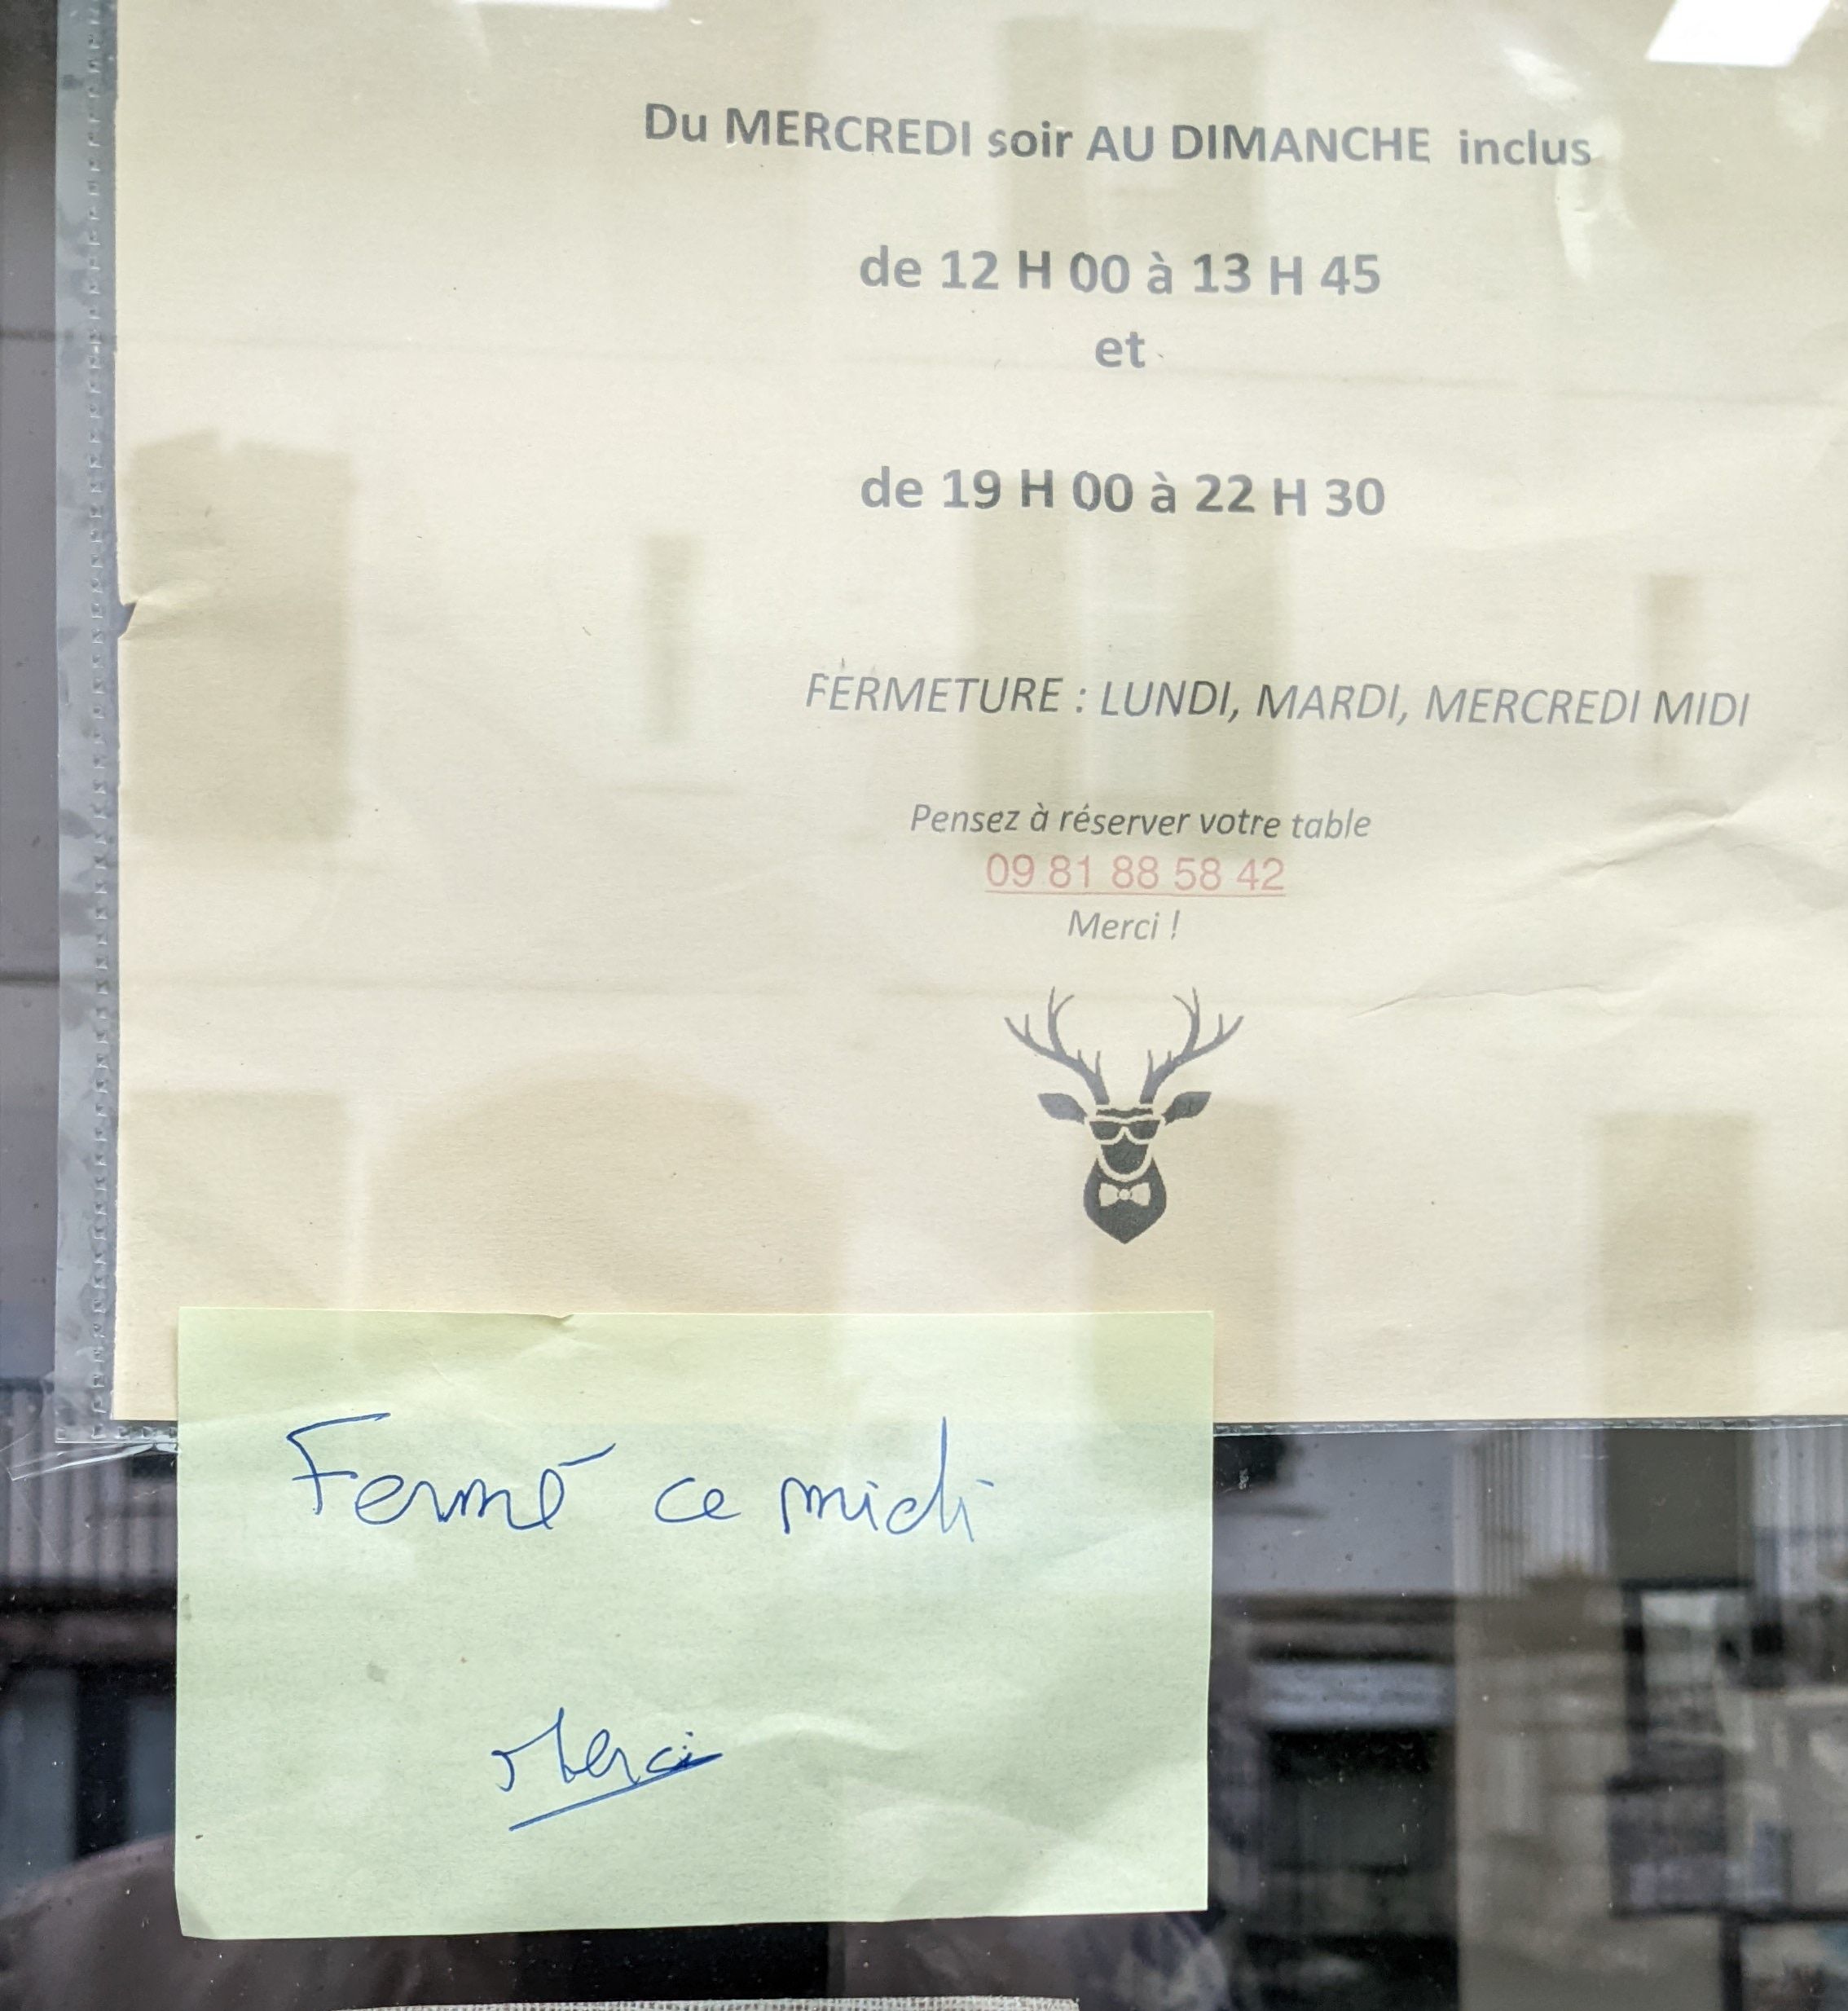 Du MERCREDI soir AU DIMANCHE inclus
de 12 H 00 à 13 H 45
et
de 19 H 00 à 22 H 30
FERMETURE : LUNDI, MARDI, MERCREDI MIDI
Pensez à réserver votre table
09 81 88 58 42
Merci !
Fermé ce midi
Merci